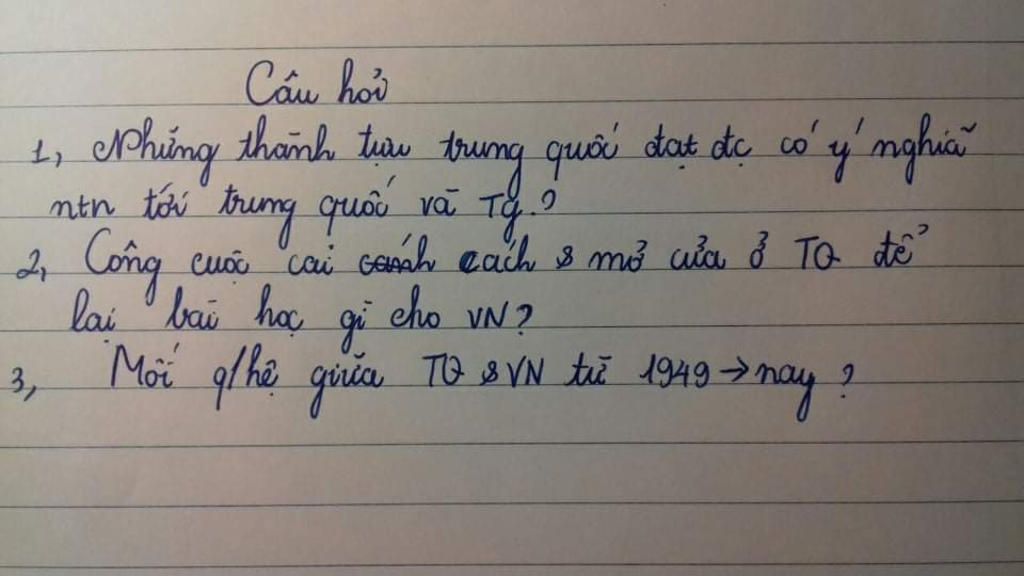 Câu hỏi
1, Những thành tựu trung quốc đạt đc có ý nghĩa
ntn tới trung quốc và TG?
2, Công cuộc cải cách & mở cửa ở TQ để
lại bài học gì cho VN?
3, Mối q/hệ giữa TQ & VN từ 1949 → nay ?